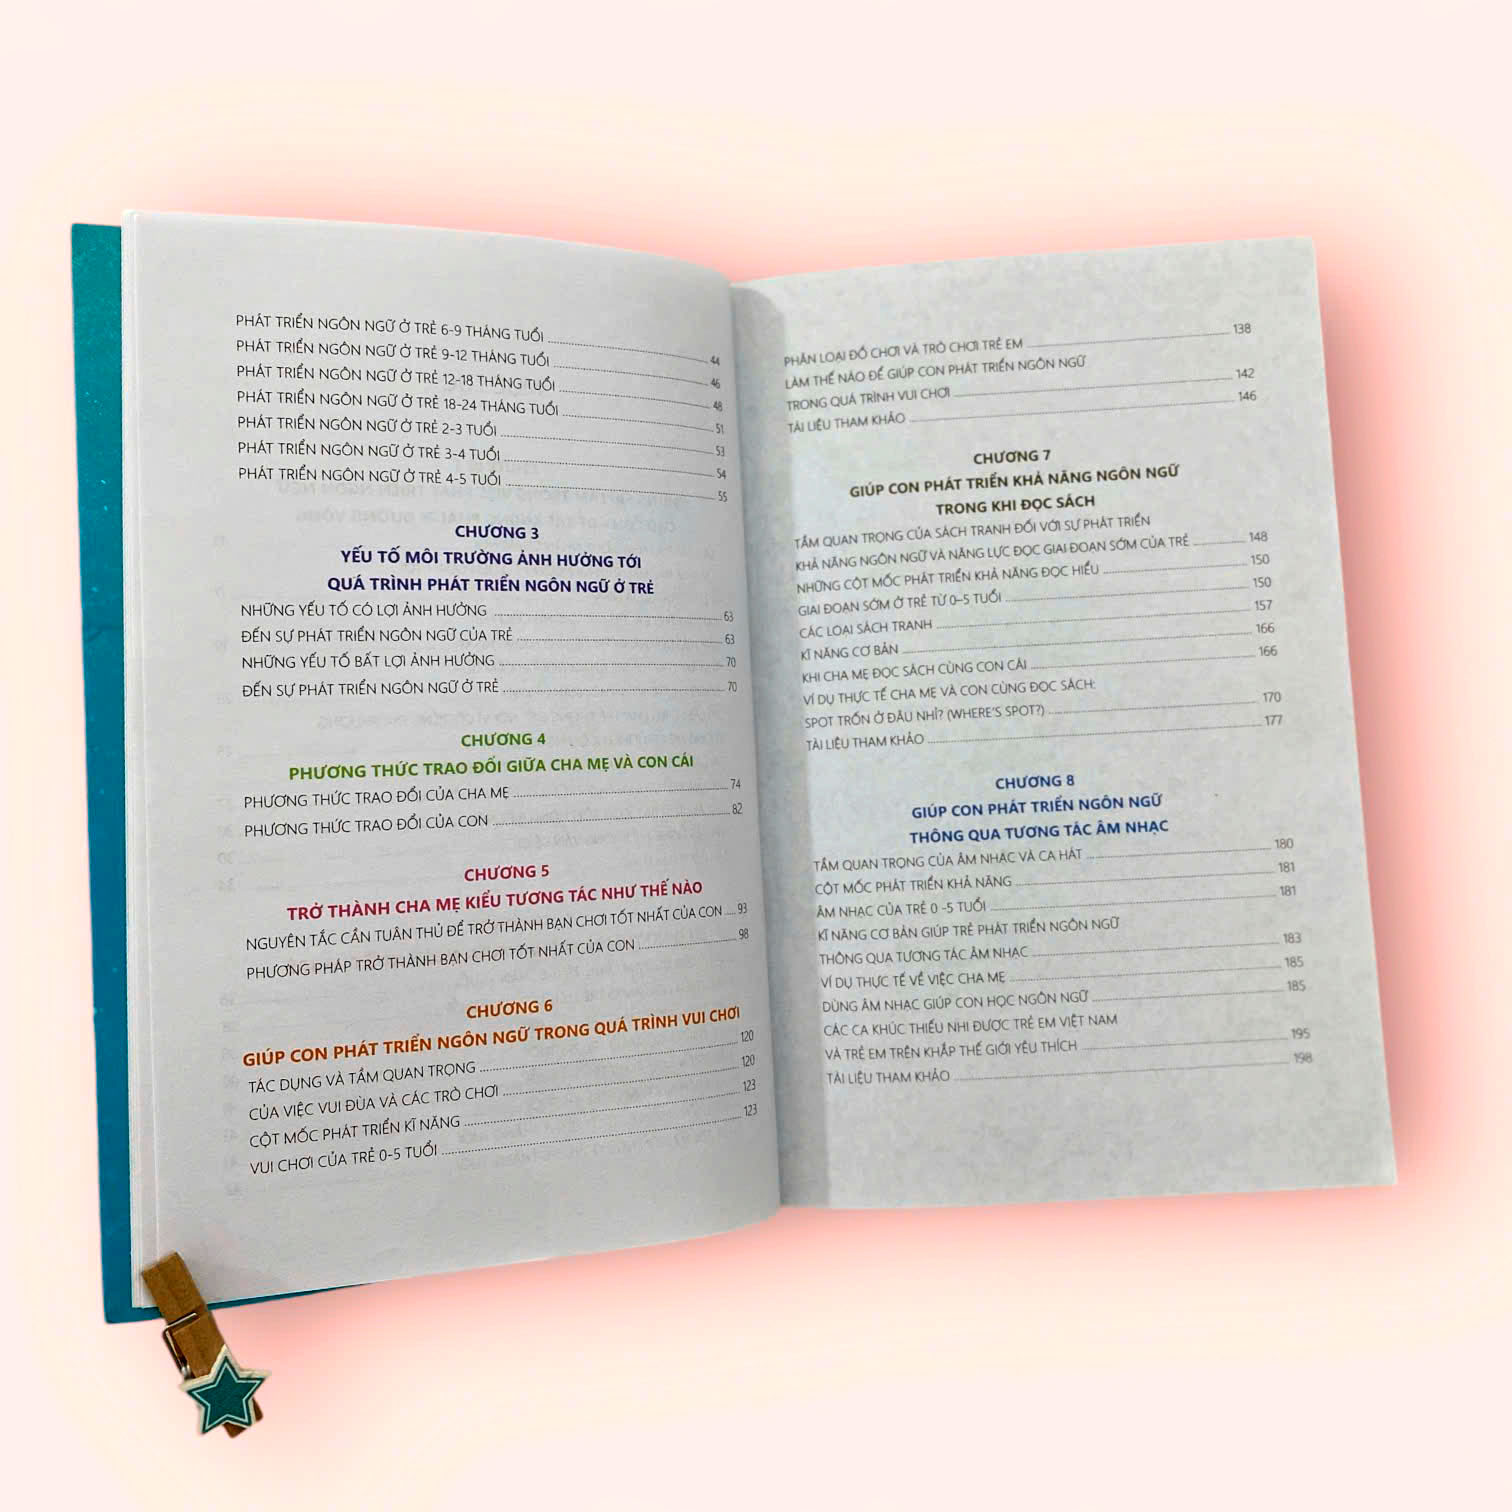 PHÁT TRIỂN NGÔN NGỮ Ở TRẺ 6-9 THÁNG TUỔI 44
PHÁT TRIỂN NGÔN NGỮ Ở TRẺ 9-12 THÁNG TUỔI 46
PHÁT TRIỂN NGÔN NGỮ Ở TRẺ 12-18 THÁNG TUỔI 48
PHÁT TRIỂN NGÔN NGỮ Ở TRẺ 18-24 THÁNG TUỔI 51
PHÁT TRIỂN NGÔN NGỮ Ở TRẺ 2-3 TUỔI 53
PHÁT TRIỂN NGÔN NGỮ Ở TRẺ 3-4 TUỔI 54
PHÁT TRIỂN NGÔN NGỮ Ở TRẺ 4-5 TUỔI 55
CHƯƠNG 3
YẾU TỐ MÔI TRƯỜNG ẢNH HƯỞNG TỚI
QUÁ TRÌNH PHÁT TRIỂN NGÔN NGỮ Ở TRẺ
NHỮNG YẾU TỐ CÓ LỢI ẢNH HƯỞNG 63
ĐẾN SỰ PHÁT TRIỂN NGÔN NGỮ CỦA TRẺ 63
NHỮNG YẾU TỐ BẤT LỢI ẢNH HƯỞNG 70
ĐẾN SỰ PHÁT TRIỂN NGÔN NGỮ Ở TRẺ 70
CHƯƠNG 4
PHƯƠNG THỨC TRAO ĐỔI GIỮA CHA MẸ VÀ CON CÁI
PHƯƠNG THỨC TRAO ĐỔI CỦA CHA MẸ 74
PHƯƠNG THỨC TRAO ĐỔI CỦA CON 82
CHƯƠNG 5
TRỞ THÀNH CHA MẸ KIỂU TƯƠNG TÁC NHƯ THẾ NÀO
NGUYÊN TẮC CẦN TUÂN THỦ ĐỂ TRỞ THÀNH BẠN CHƠI TỐT NHẤT CỦA CON 93
PHƯƠNG PHÁP TRỞ THÀNH BẠN CHƠI TỐT NHẤT CỦA CON 98
CHƯƠNG 6
GIÚP CON PHÁT TRIỂN NGÔN NGỮ TRONG QUÁ TRÌNH VUI CHƠI
TÁC DỤNG VÀ TẦM QUAN TRỌNG 120
CỦA VIỆC VUI ĐÙA VÀ CÁC TRÒ CHƠI 120
CỘT MỐC PHÁT TRIỂN KĨ NĂNG 123
VUI CHƠI CỦA TRẺ 0-5 TUỔI 123
PHÂN LOẠI ĐỒ CHƠI VÀ TRÒ CHƠI TRẺ EM 138
LÀM THẾ NÀO ĐỂ GIÚP CON PHÁT TRIỂN NGÔN NGỮ
TRONG QUÁ TRÌNH VUI CHƠI 142
TÀI LIỆU THAM KHẢO 146
CHƯƠNG 7
GIÚP CON PHÁT TRIỂN KHẢ NĂNG NGÔN NGỮ
TRONG KHI ĐỌC SÁCH
TẦM QUAN TRỌNG CỦA SÁCH TRANH ĐỐI VỚI SỰ PHÁT TRIỂN
KHẢ NĂNG NGÔN NGỮ VÀ NĂNG LỰC ĐỌC GIAI ĐOẠN SỚM CỦA TRẺ 148
NHỮNG CỘT MỐC PHÁT TRIỂN KHẢ NĂNG ĐỌC HIỂU 150
GIAI ĐOẠN SỚM Ở TRẺ TỪ 0–5 TUỔI 150
CÁC LOẠI SÁCH TRANH 157
KĨ NĂNG CƠ BẢN 166
KHI CHA MẸ ĐỌC SÁCH CÙNG CON CÁI 166
VÍ DỤ THỰC TẾ CHA MẸ VÀ CON CÙNG ĐỌC SÁCH:
SPOT TRỐN Ở ĐÂU NHỈ? (WHERE'S SPOT?) 170
TÀI LIỆU THAM KHẢO 177
CHƯƠNG 8
GIÚP CON PHÁT TRIỂN NGÔN NGỮ
THÔNG QUA TƯƠNG TÁC ÂM NHẠC
TẦM QUAN TRỌNG CỦA ÂM NHẠC VÀ CA HÁT 180
CỘT MỐC PHÁT TRIỂN KHẢ NĂNG 181
ÂM NHẠC CỦA TRẺ 0 -5 TUỔI 181
KĨ NĂNG CƠ BẢN GIÚP TRẺ PHÁT TRIỂN NGÔN NGỮ
THÔNG QUA TƯƠNG TÁC ÂM NHẠC 183
VÍ DỤ THỰC TẾ VỀ VIỆC CHA MẸ 185
DÙNG ÂM NHẠC GIÚP CON HỌC NGÔN NGỮ 185
CÁC CA KHÚC THIẾU NHI ĐƯỢC TRẺ EM VIỆT NAM
VÀ TRẺ EM TRÊN KHẮP THẾ GIỚI YÊU THÍCH 195
TÀI LIỆU THAM KHẢO 198